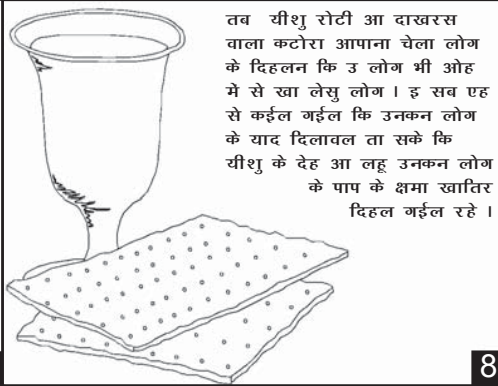 तब यीशु रोटी आ दाखरस
वाला कटोरा आपाना चेला लोग
के दिहलन कि उ लोग भी ओह
मे से खा लेसु लोग । इ सब एह
से कईल गईल कि उनकन लोग
के याद दिलावल ता सके कि
यीशु के देह आ लहू उनकन लोग
के पाप के क्षमा खातिर
दिहल गईल रहे ।
8